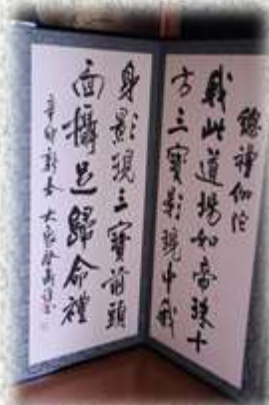 總禮伽陀
我此道場如帝珠十
方三寶影現中我
身影現三寶前頭
面攝足歸命禮
辛卯新春